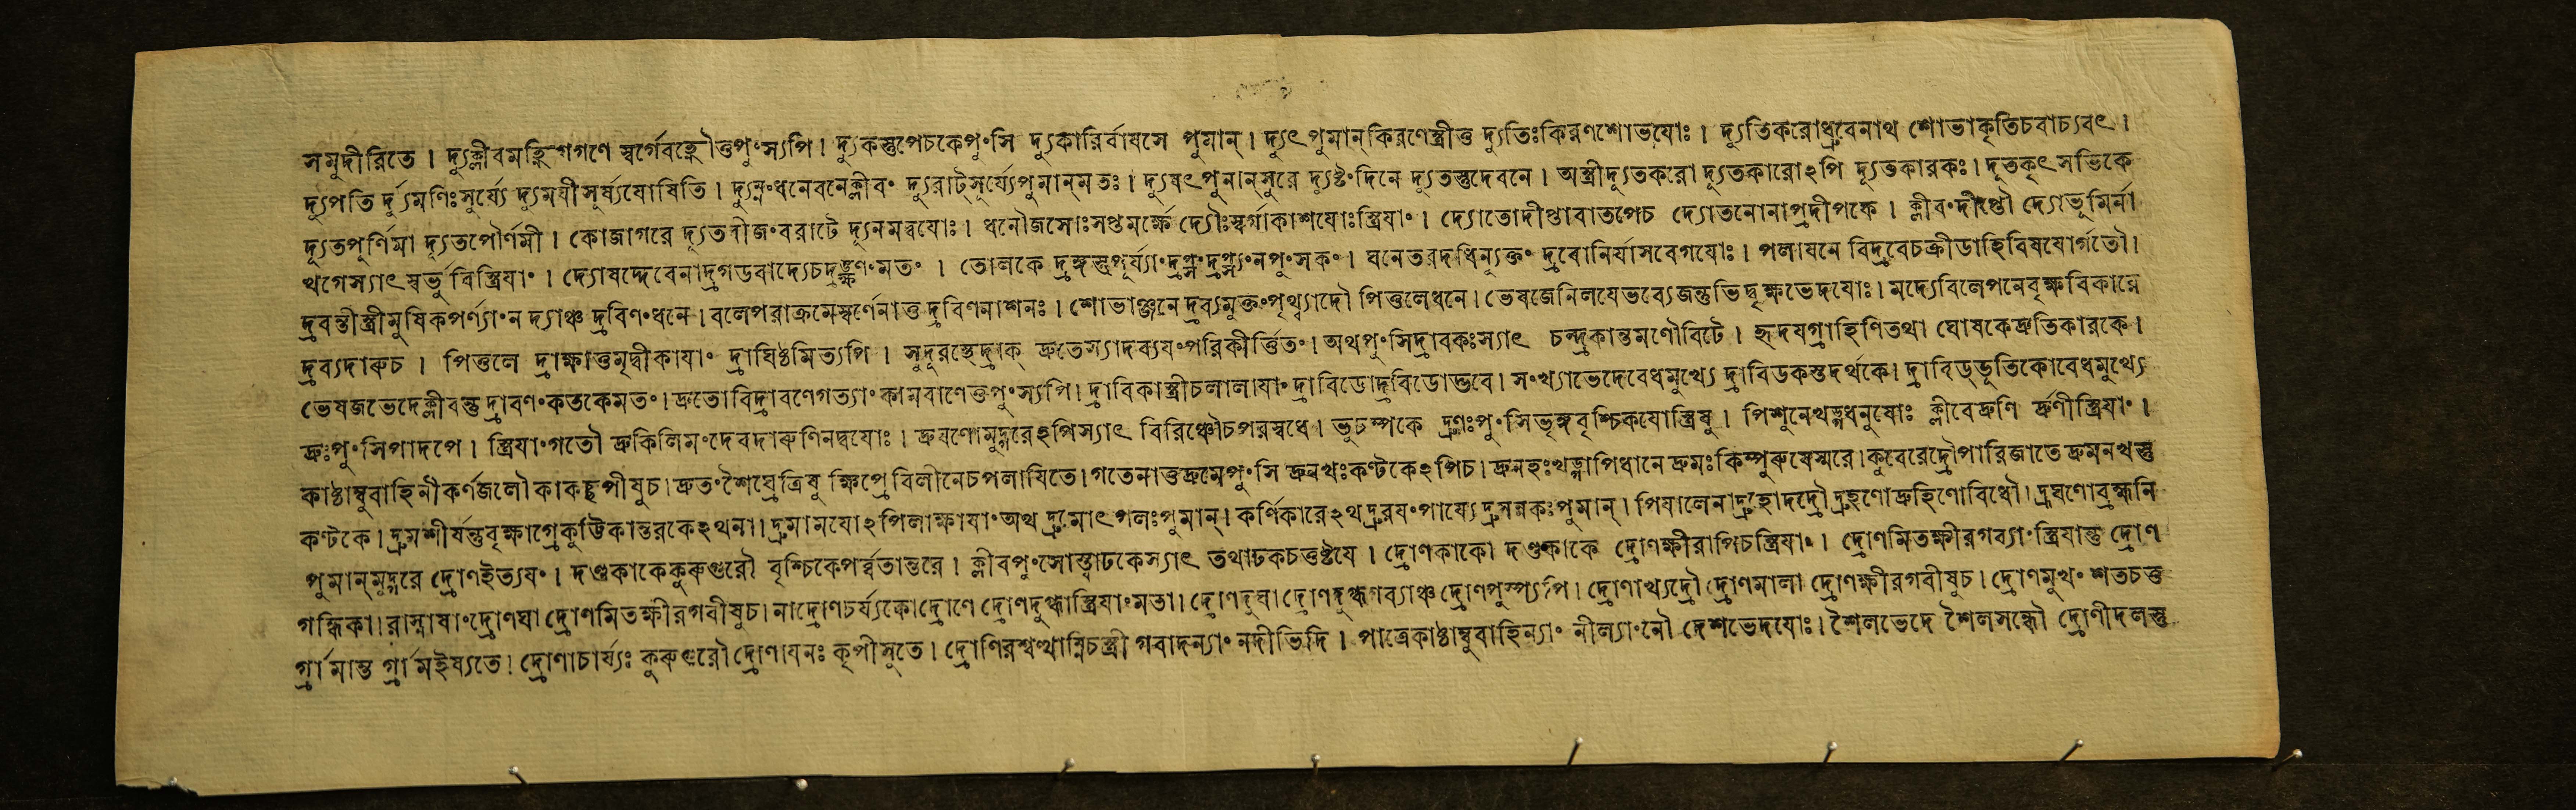 সমুদীরিতে । দ্যুক্লীবমহ্নিগগণে স্বর্গেবহ্নৌতুপুংস্যপি । দ্যুকস্তুপেচকেপুংসি দ্যুকারির্বাযসে পুমান্ । দ্যুৎপুমান্কিরণেস্ত্রীতু দ্যুতিঃকিরণশোভযোঃ । দ্যুতিকরোধ্রুবেনাথ শোভাকৃতিচবাচ্যবৎ ।
দ্যুপতি র্দ্যুমণিঃসূর্য্যে দ্যুমযীসূর্য্যযোষিতি । দ্যুম্নংধনেবনেক্লীবং দ্যুরাট্সূর্য্যেপুমান্মতঃ । দ্যুষৎপুমান্সুরে দ্যুষ্টংদিনে দ্যুতস্তুদেবনে । অস্ত্রীদ্যূতকরো দ্যূতকারোঽপি দ্যূতকারকঃ । দূতকৃৎসভিকে
দ্যূতপূর্ণিমা দ্যূতপৌর্ণমী । কোজাগরে দ্যূতবীজংবরাটে দ্যূনমদ্বযোঃ । ধনৌজসোঃসপ্তমর্ক্ষে দ্যৌঃস্বর্গাকাশযোঃস্ত্রিযাং । দ্যোতোদীপ্তাবাতপেচ দ্যোতনোনাপ্রদীপকে । ক্লীবংদীপ্তৌ দ্যোভূমির্না
থগেস্যাৎস্বর্ভুবিস্ত্রিযাং । দ্যোষদ্দেবেনাদ্রগডবাদ্যেচদ্রঙ্ক্ষণংমতং । তোলকে দ্রঙ্গস্তুপূর্য্যাংদ্রপ্সংদ্রপ্স্যংনপুংসকং । ঘনেতরদধিন্যুক্তং দ্রবোনির্যাসবেগযোঃ । পলাযনে বিদ্রবেচক্রীডাহিবিষযোর্গতৌ ।
দ্রবন্তীস্ত্রীমূষিকপর্ণ্যাংন দ্যাঞ্চ দ্রবিণংধনে । বলেপরাক্রমেস্বর্ণেনাতু দ্রবিণনাশনঃ । শোভাঞ্জনে দ্রব্যমুক্তংপৃথ্ব্যাদৌ পিত্তলেধনে । ভেষজেনিলযেভব্যেজতুভিদ্বৃক্ষভেদযোঃ । মদ্যেবিলেপনেবৃক্ষবিকারে
দ্রব্যদারুচ । পিত্তলে দ্রাক্ষাতুমৃদ্বীকাযাং দ্রাঘিষ্ঠমিত্যপি । সুদূরস্থেদ্রাক্ দ্রুতেস্যাদব্যযংপরিকীর্ত্তিতং । অথপুংসিদ্রাবকঃস্যাৎ চন্দ্রকান্তমণৌবিটে । হৃদযগ্রাহিণিতথা ঘোষকেদ্রুতিকারকে ।
ভেষজভেদেক্লীবন্তু দ্রাবণংকতকেমতং । দ্রুতোবিদ্রাবণেগত্যাং কামবাণেতুপুংস্যপি । দ্রাবিকাস্ত্রীচলালাযাংদ্রাবিডোদ্রবিডোদ্ভবে । সংখ্যাভেদেবেধমুখ্যে দ্রাবিডকস্তদর্থকে । দ্রাবিড্ভূতিকোবেধমুখ্যে
দ্রুঃপুংসিপাদপে । স্ত্রিযাংগতৌ দ্রুকিলিমংদেবদারুণিনদ্বযোঃ । দ্রুঘণোমুদ্গরেঽপিস্যাৎ বিরিঞ্চৌচপরস্বধে । ভূচম্পকে দ্রুণঃপুংসিভৃঙ্গবৃশ্চিকযোস্ত্রিষু । পিশুনেখড্গধনুষোঃ ক্লীবেদ্রুণি র্দ্রুণীস্ত্রিযাং ।
কাষ্ঠাম্বুবাহিনীকর্ণজলৌকাকচ্ছপীষুচ । দ্রুতংশৈঘ্রেত্রিষু ক্ষিপ্রেবিলীনেচপলাযিতে । গতেনাতুদ্রুমেপুংসি দ্রুনখঃকণ্টকেঽপিচ । দ্রুনহঃখড্গাপিধানে দ্রুমঃকিম্পুরুষেস্মরে । কুবেরেদ্রৌপারিজাতে দ্রুমনখস্তু
কণ্টকে । দ্রুমশীর্ষন্তুবৃক্ষাগ্রেকুট্টিকান্তরকেঽথনা । দ্রুমামযোঽপিলাক্ষাযাংঅথ দ্রুমোৎপলঃপুমান্ । কর্ণিকারেঽথদ্রুরযংপায্যে দ্রুসল্লকঃপুমান্ । পিযালেনাদ্রুহোদদ্রৌ দ্রুহণোদ্রুহিণোবিধৌ । দ্রূঘণোব্রহ্মনি
পুমান্মুদ্গরে দ্রোণইত্যযং । দণ্ডকাকেকুরুগুরৌ বৃশ্চিকেপর্ব্বতান্তরে । ক্লীবপুংসোস্ত্বাঢকেস্যাৎ তথাঢকচতুষ্টযে । দ্রোণকাকো দণ্ডকাকে দ্রোণক্ষীরাপিচস্ত্রিযাং । দ্রোণমিতক্ষীরগব্যাং স্ত্রিযান্তু দ্রোণ
গন্ধিকা । রাস্নাযাংদ্রোণঘা দ্রোণমিতক্ষীরগবীষুচ । নাদ্রোণচর্য্যকোদ্রোণে দ্রোণদুগ্ধাস্ত্রিযাংমতা । দ্রোণদুঘা দ্রোণদুগ্ধগব্যাঞ্চ দ্রোণপুষ্প্যপি । দ্রোণাখ্যদ্রৌ দ্রোণমালা দ্রোণক্ষীরগবীষুচ । দ্রোণমুখং শতচতু
র্গ্রামান্ত র্গ্রামইষ্যতে । দ্রোণাচার্য্যঃ কুরুগুরৌ দ্রোণাযনঃ কৃপীসুতে । দ্রোণিরশ্বত্থাম্নিচস্ত্রী গবাদন্যাং নদীভিদি । পাত্রেকাষ্ঠাম্বুবাহিন্যাং নীল্যাংনৌ দেশভেদযোঃ । শৈলভেদে শৈলসন্ধৌ দ্রোণীদলস্তু